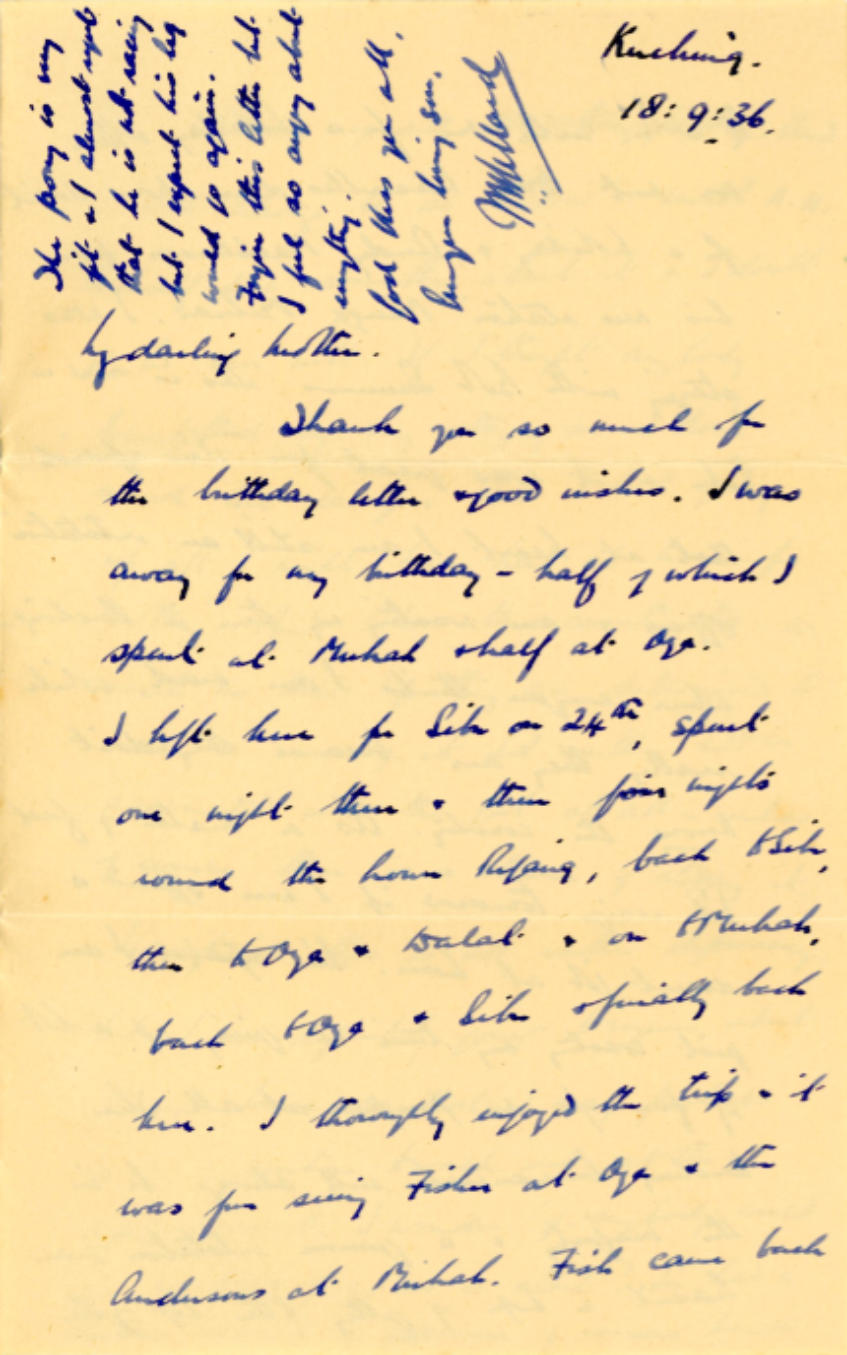 Kuching.
18:9:36.
My darling Mother.
Thank you so much for
the birthday letter & good wishes. I was
away for my birthday - half of which I
spent at Mukah & half at Oya.
I left here for Sibu on 24th, spent
one night there & then four nights
round the lower Rejang, back to Sibu,
then to Oya & Dalat & on to Mukah,
back to Oya & Sibu & finally back
here. I thoroughly enjoyed the trip & it
was fun seeing Fisher at Oya & the
Andersons at Mukah. Fish came back
The pony is very
fit & I almost
that he is not racing
but I expect his leg
would go again.
Forgive this letter but
I feel so angry about
everything.
God bless you all,
Your loving son,